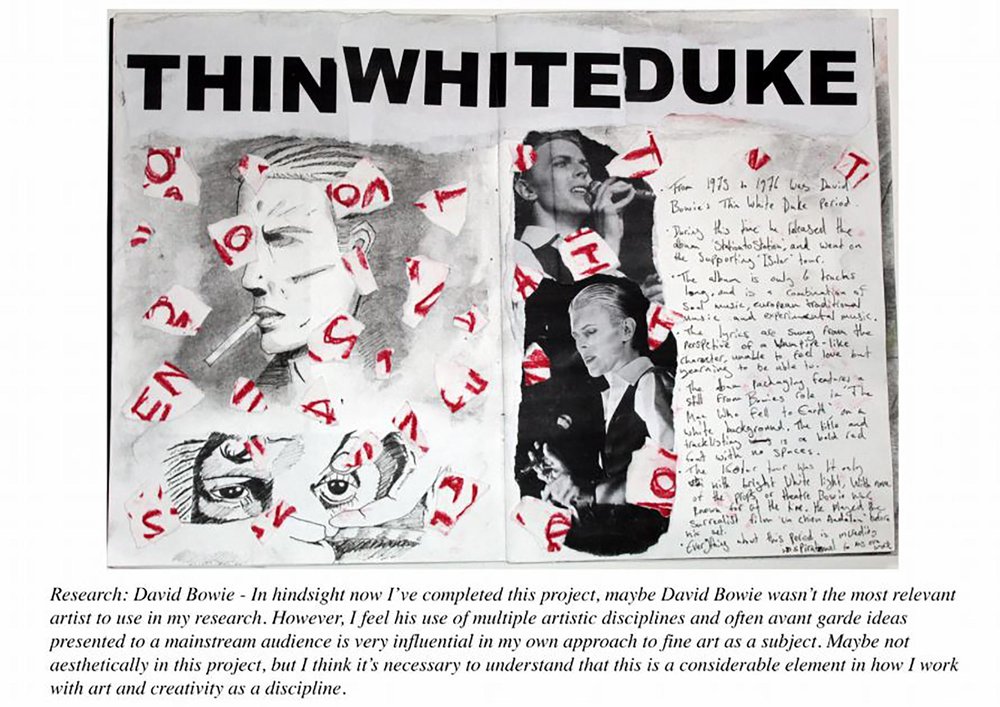 THINWHITEDUKE
· From 1975 to 1976 was David
Bowie's Thin White Duke Period.
· During this time he released the
album 'Stationtostation', and went on
the supporting 'Isolar' tour.
· The album is only 6 tracks
long, and is a combination of
Soul music, european traditional
music and experimental music.
The lyrics are sung from the
perspective of a Vampire-like
character, unable to feel love but
yearning to be able to.
The album packaging features a
still from Bowie's role in 'The
Man Who Fell to Earth', on a
white background. The title and
tracklisting is a bold red
font with no spaces.
The Isolar tour was lit only
with bright white light, with none
of the props or theatre Bowie was
known for at the time. He played the
surrealist film 'un chien Andalou' before
his set.
· Everything about this period is
inspirational to my own work
Research: David Bowie - In hindsight now I've completed this project, maybe David Bowie wasn't the most relevant
artist to use in my research. However, I feel his use of multiple artistic disciplines and often avant garde ideas
presented to a mainstream audience is very influential in my own approach to fine art as a subject. Maybe not
aesthetically in this project, but I think it's necessary to understand that this is a considerable element in how I work
with art and creativity as a discipline.